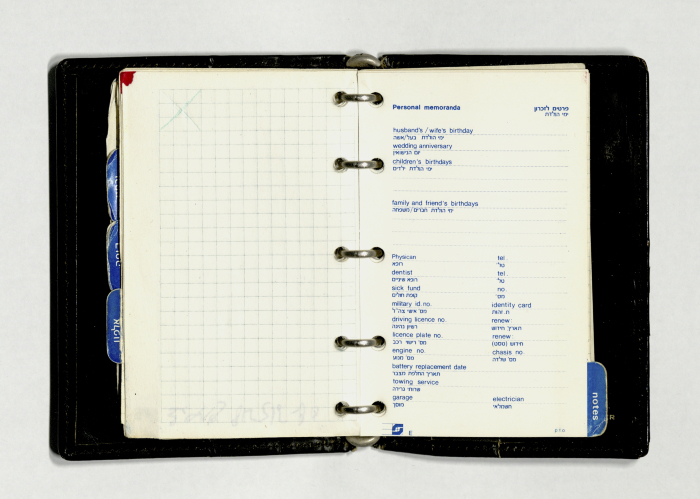 Personal memoranda פרטים לזכרון
ימי הולדת
husband's / wife's birthday
ימי הולדת בעל/אשה
wedding anniversary
יום הנישואין
children's birthdays
ימי הולדת ילדים
family and friend's birthdays
ימי הולדת חברים/משפחה
Physician tel.
רופא טל'
dentist tel.
רופא שיניים טל'
sick fund no.
קופת חולים מס'
military id no. identity card
מס' אישי צה"ל ת. זהות
driving licence no. renew
רשיון נהיגה תאריך חידוש
licence plate no. renew
מס' רישוי רכב חידוש (טסט)
engine no. chasis no.
מס' מנוע מס' שלדה
battery replacement date
תאריך החלפת מצבר
towing service
שרותי גרירה
garage electrician
מוסך חשמלאי
E
notes
R